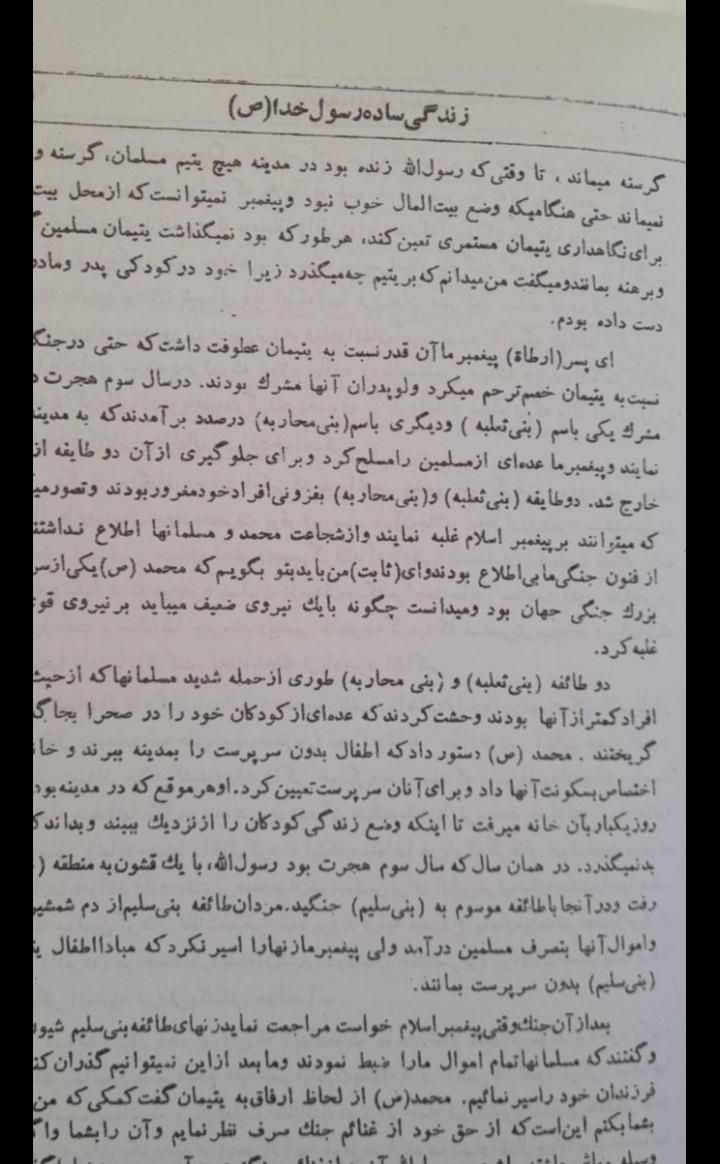 زندگی ساده رسول خدا(ص)
گرسنه میماند ، تا وقتی که رسول‌الله زنده بود در مدینه هیچ یتیم مسلمان، گرسنه و
نمیماند حتی هنگامیکه وضع بیت‌المال خوب نبود وپیغمبر نمیتوانست که ازمحل بیت
برای نگاهداری یتیمان مستمری تعین کند، هرطورکه بود نمیگذاشت یتیمان مسلمین
وبرهنه بمانندومیگفت من‌میدانم که بریتیم چه‌میگذرد زیرا خود درکودکی پدر ومادر
دست داده بودم.
ای پسر(ارطاة) پیغمبرما آن قدر نسبت به یتیمان عطوفت داشت که حتی درجنگ
نسبت‌به یتیمان خصم ترحم میکرد ولوپدران آنها مشرك بودند. درسال سوم هجرت
مشرك یکی باسم (بنی‌ثعلبه ) ودیگری باسم(بنی‌محاربه) درصدد برآمدندکه به مدینه
نمایند وپیغمبرما عده‌ای ازمسلمین رامسلح کرد وبرای جلوگیری ازآن دو طایفه از
خارج شد. دوطایفه (بنی‌ثعلبه) و(بنی‌محاربه) بفزونی‌افرادخودمغروربودند وتصورمی
که میتوانند برپیغمبر اسلام غلبه نمایند وازشجاعت محمد و مسلمانها اطلاع نداشتند
از فنون جنگی‌مابی‌اطلاع بودندوای(ثابت)من‌بایدبتو بگویم‌که محمد (ص)یکی‌ازسر
بزرك جنگی جهان بود ومیدانست چگونه بایك نیروی ضعیف میباید برنیروی قو
غلبه‌کرد.
دو طائفه (بنی‌ثعلبه) و (بنی محاربه) طوری ازحمله شدید مسلمانهاکه ازحیث
افرادکمترازآنها بودند وحشت‌کردندکه عده‌ای‌ازکودکان خود را در صحرا بجا
گریختند . محمد (ص) دستور دادکه اطفال بدون سرپرست را بمدینه ببرند و خا
اختصاص‌بسکونت‌آنها داد وبرای‌آنان سرپرست‌تعیین‌کرد.اوهرموقع‌که در مدینه‌بود
روزیکباربآن خانه میرفت تا اینکه وضع زندگی‌کودکان را ازنزدیك ببیند وبداندک
بدنمیگذرد. در همان سال که سال سوم هجرت بود رسول‌الله، با یك قشون‌به منطقه (
رفت ودرآنجا باطائفه موسوم به (بنی‌سلیم) جنگید.مردان‌طائفه بنی‌سلیم‌از دم شمشیر
واموال‌آنها بتصرف مسلمین درآمد ولی پیغمبرمازنهارا اسیر نکردکه مبادااطفال
(بنی‌سلیم) بدون سرپرست بمانند.
بعدازآن‌جنك‌وقتی‌پیغمبراسلام خواست مراجعت نمایدزنهای‌طائفه‌بنی‌سلیم شیون
وگفتندکه مسلمانهاتمام اموال مارا ضبط نمودند ومابعد ازاین نمیتوانیم گذران‌کن
فرزندان خود راسیر نمائیم. محمد(ص) از لحاظ ارفاق‌به یتیمان گفت کمکی‌که من
بشمابکنم این‌است‌که از حق خود از غنائم جنك صرف نظر نمایم وآن رابشما واگ